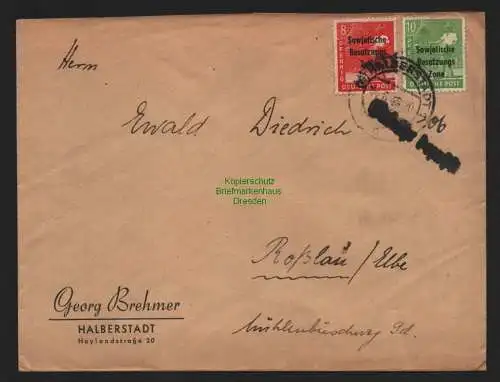 8
10
PFENNIG
Sowjetische
Besatzungs
Zone
DEUTSCHE POST
Sowjetische
Besatzungs
Zone
DEUTSCHE POST
HALBERSTADT
Herrn
Ewald Diedrich
Kopierschutz
Briefmarkenhaus
Dresden
Roßlau/Elbe
Georg Brehmer
HALBERSTADT
Haylandstraße 20